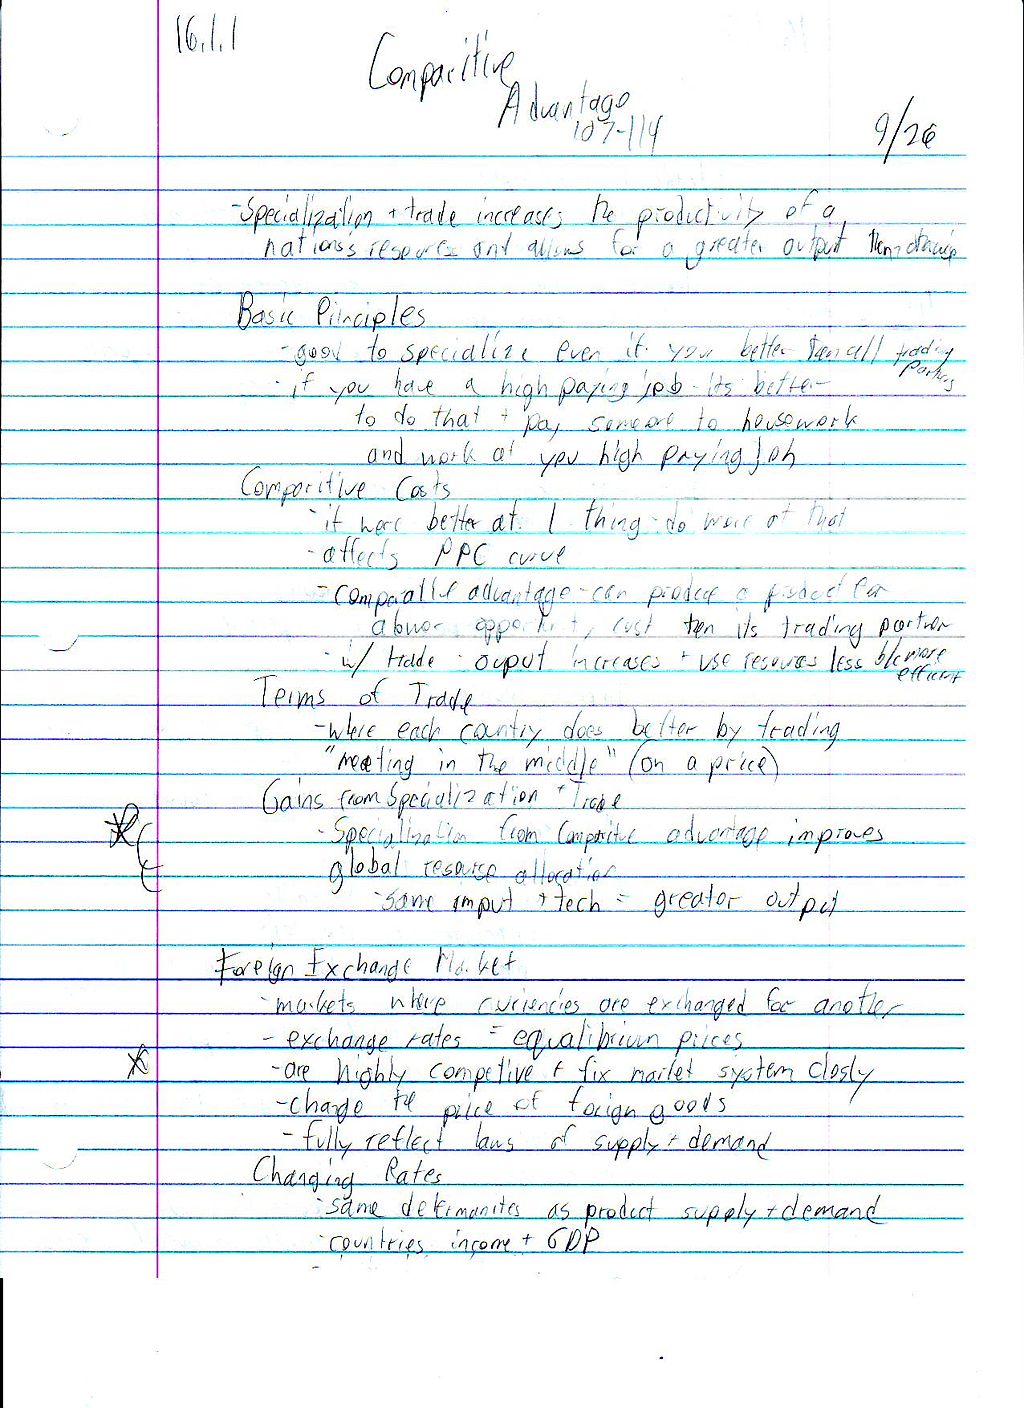 16.1.1
Comparitive
Advantage
107-114
9/26
-Specialization + trade increases the productivity of a
nation's resources and allows for a greater output then otherwise
Basic Principles
-good to specialize even if you better then all trading
partners
-if you have a high paying job its better
to do that + pay someone to housework
and work at you high paying job
Comparitive Costs
-if more better at 1 thing do more of that
-affects PPC curve
-comparative advantage-can produce a product for
a lower opportunity cost then its trading partner
-w/ trade ouput increases + use resources less b/c more
efficient
Terms of Trade
-where each country does better by trading
"meeting in the middle" (on a price)
Gains from Specialization + Trade
-Specialization from comparitive advantage improves
global resource allocation
-same imput + tech = greater output
Foreign Exchange Market
-markets where currencies are exchanged for another
-exchange rates = equalibrium prices
-are highly competive + fix market system closly
-change the price of foreign goods
-fully reflect laws of supply + demand
Changing Rates
-same determanites as product supply + demand
-countries income + GDP
-